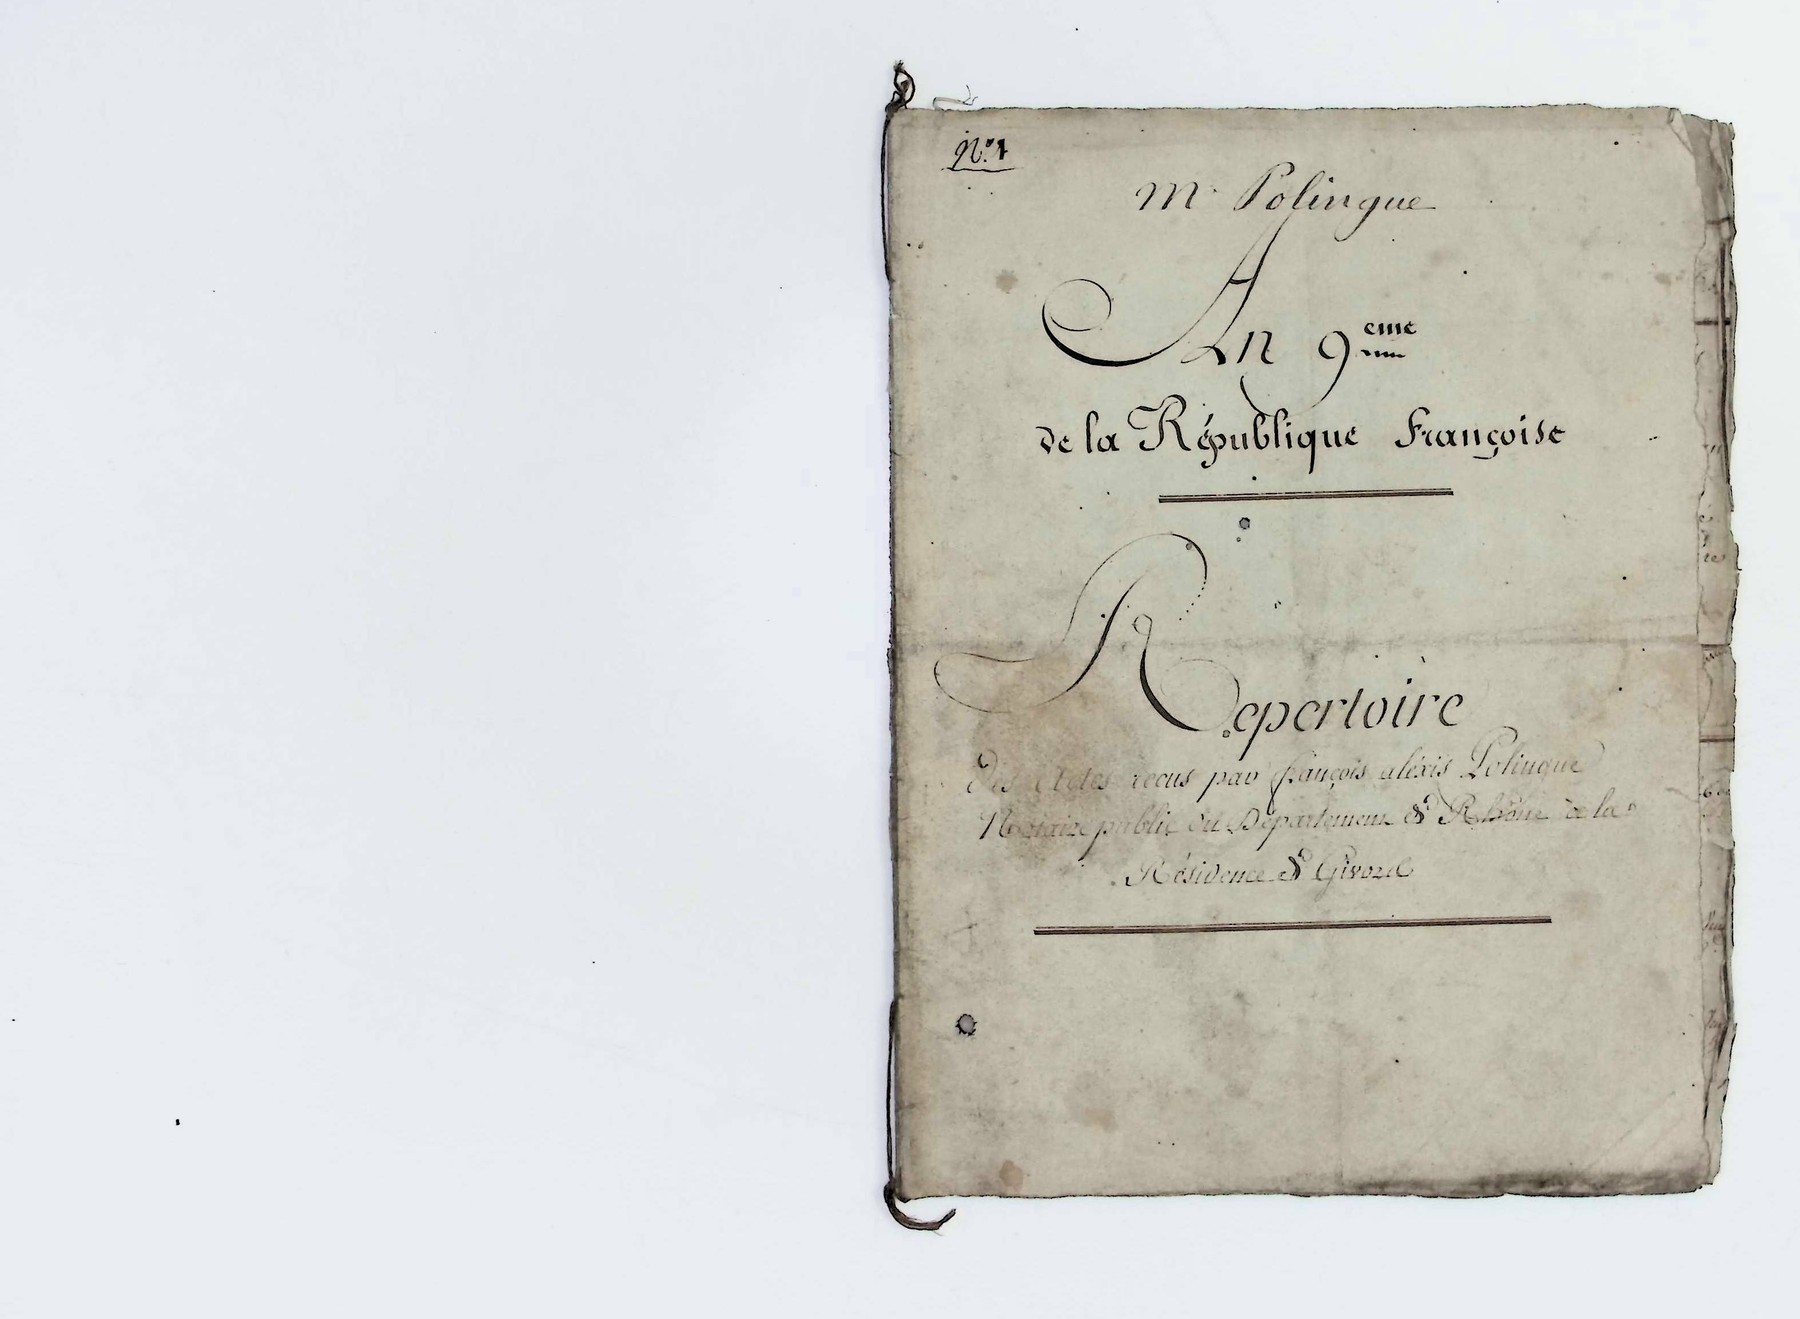 N.° 1
Mr Polingue
An 9eme
de la République françoise
Repertoire
des Actes recus par françois aléxis Polingue
Notaire public du Département de Rhône de la
Résidence de Givord